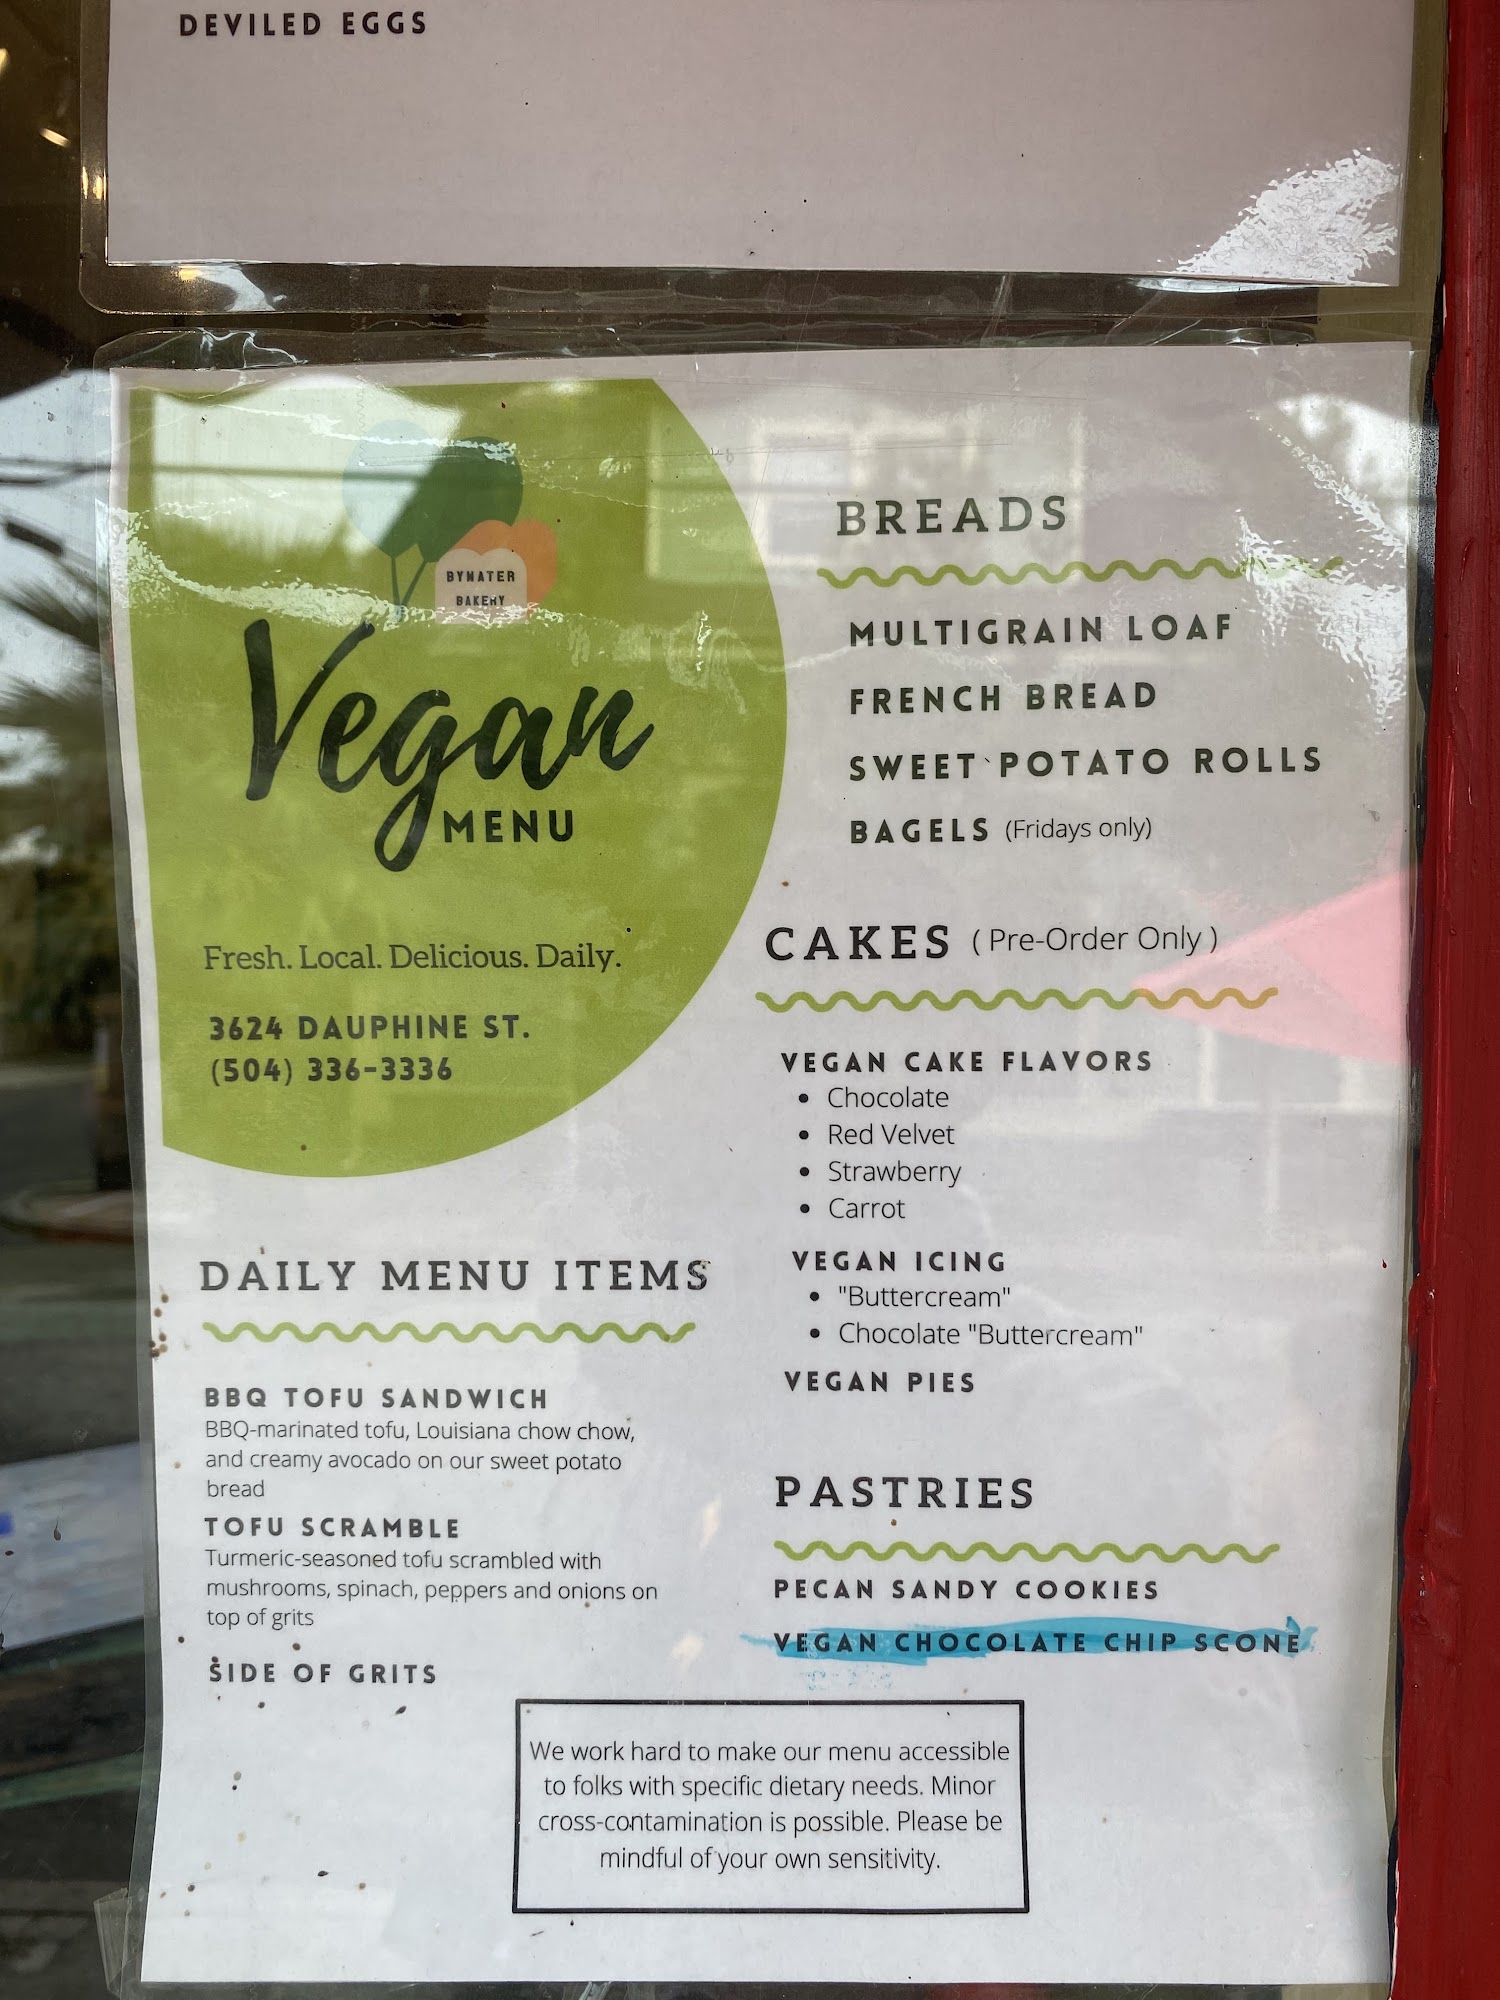 DEVILED EGGS
BYWATER
BAKERY
Vegan
MENU
Fresh. Local. Delicious. Daily.
3624 DAUPHINE ST.
(504) 336-3336
DAILY MENU ITEMS
BBQ TOFU SANDWICH
BBQ-marinated tofu, Louisiana chow chow,
and creamy avocado on our sweet potato
bread
TOFU SCRAMBLE
Turmeric-seasoned tofu scrambled with
mushrooms, spinach, peppers and onions on
top of grits
SIDE OF GRITS
BREADS
MULTIGRAIN LOAF
FRENCH BREAD
SWEET POTATO ROLLS
BAGELS (Fridays only)
CAKES ( Pre-Order Only )
VEGAN CAKE FLAVORS
• Chocolate
• Red Velvet
• Strawberry
• Carrot
VEGAN ICING
• "Buttercream"
• Chocolate "Buttercream"
VEGAN PIES
PASTRIES
PECAN SANDY COOKIES
VEGAN CHOCOLATE CHIP SCONE
We work hard to make our menu accessible
to folks with specific dietary needs. Minor
cross-contamination is possible. Please be
mindful of your own sensitivity.